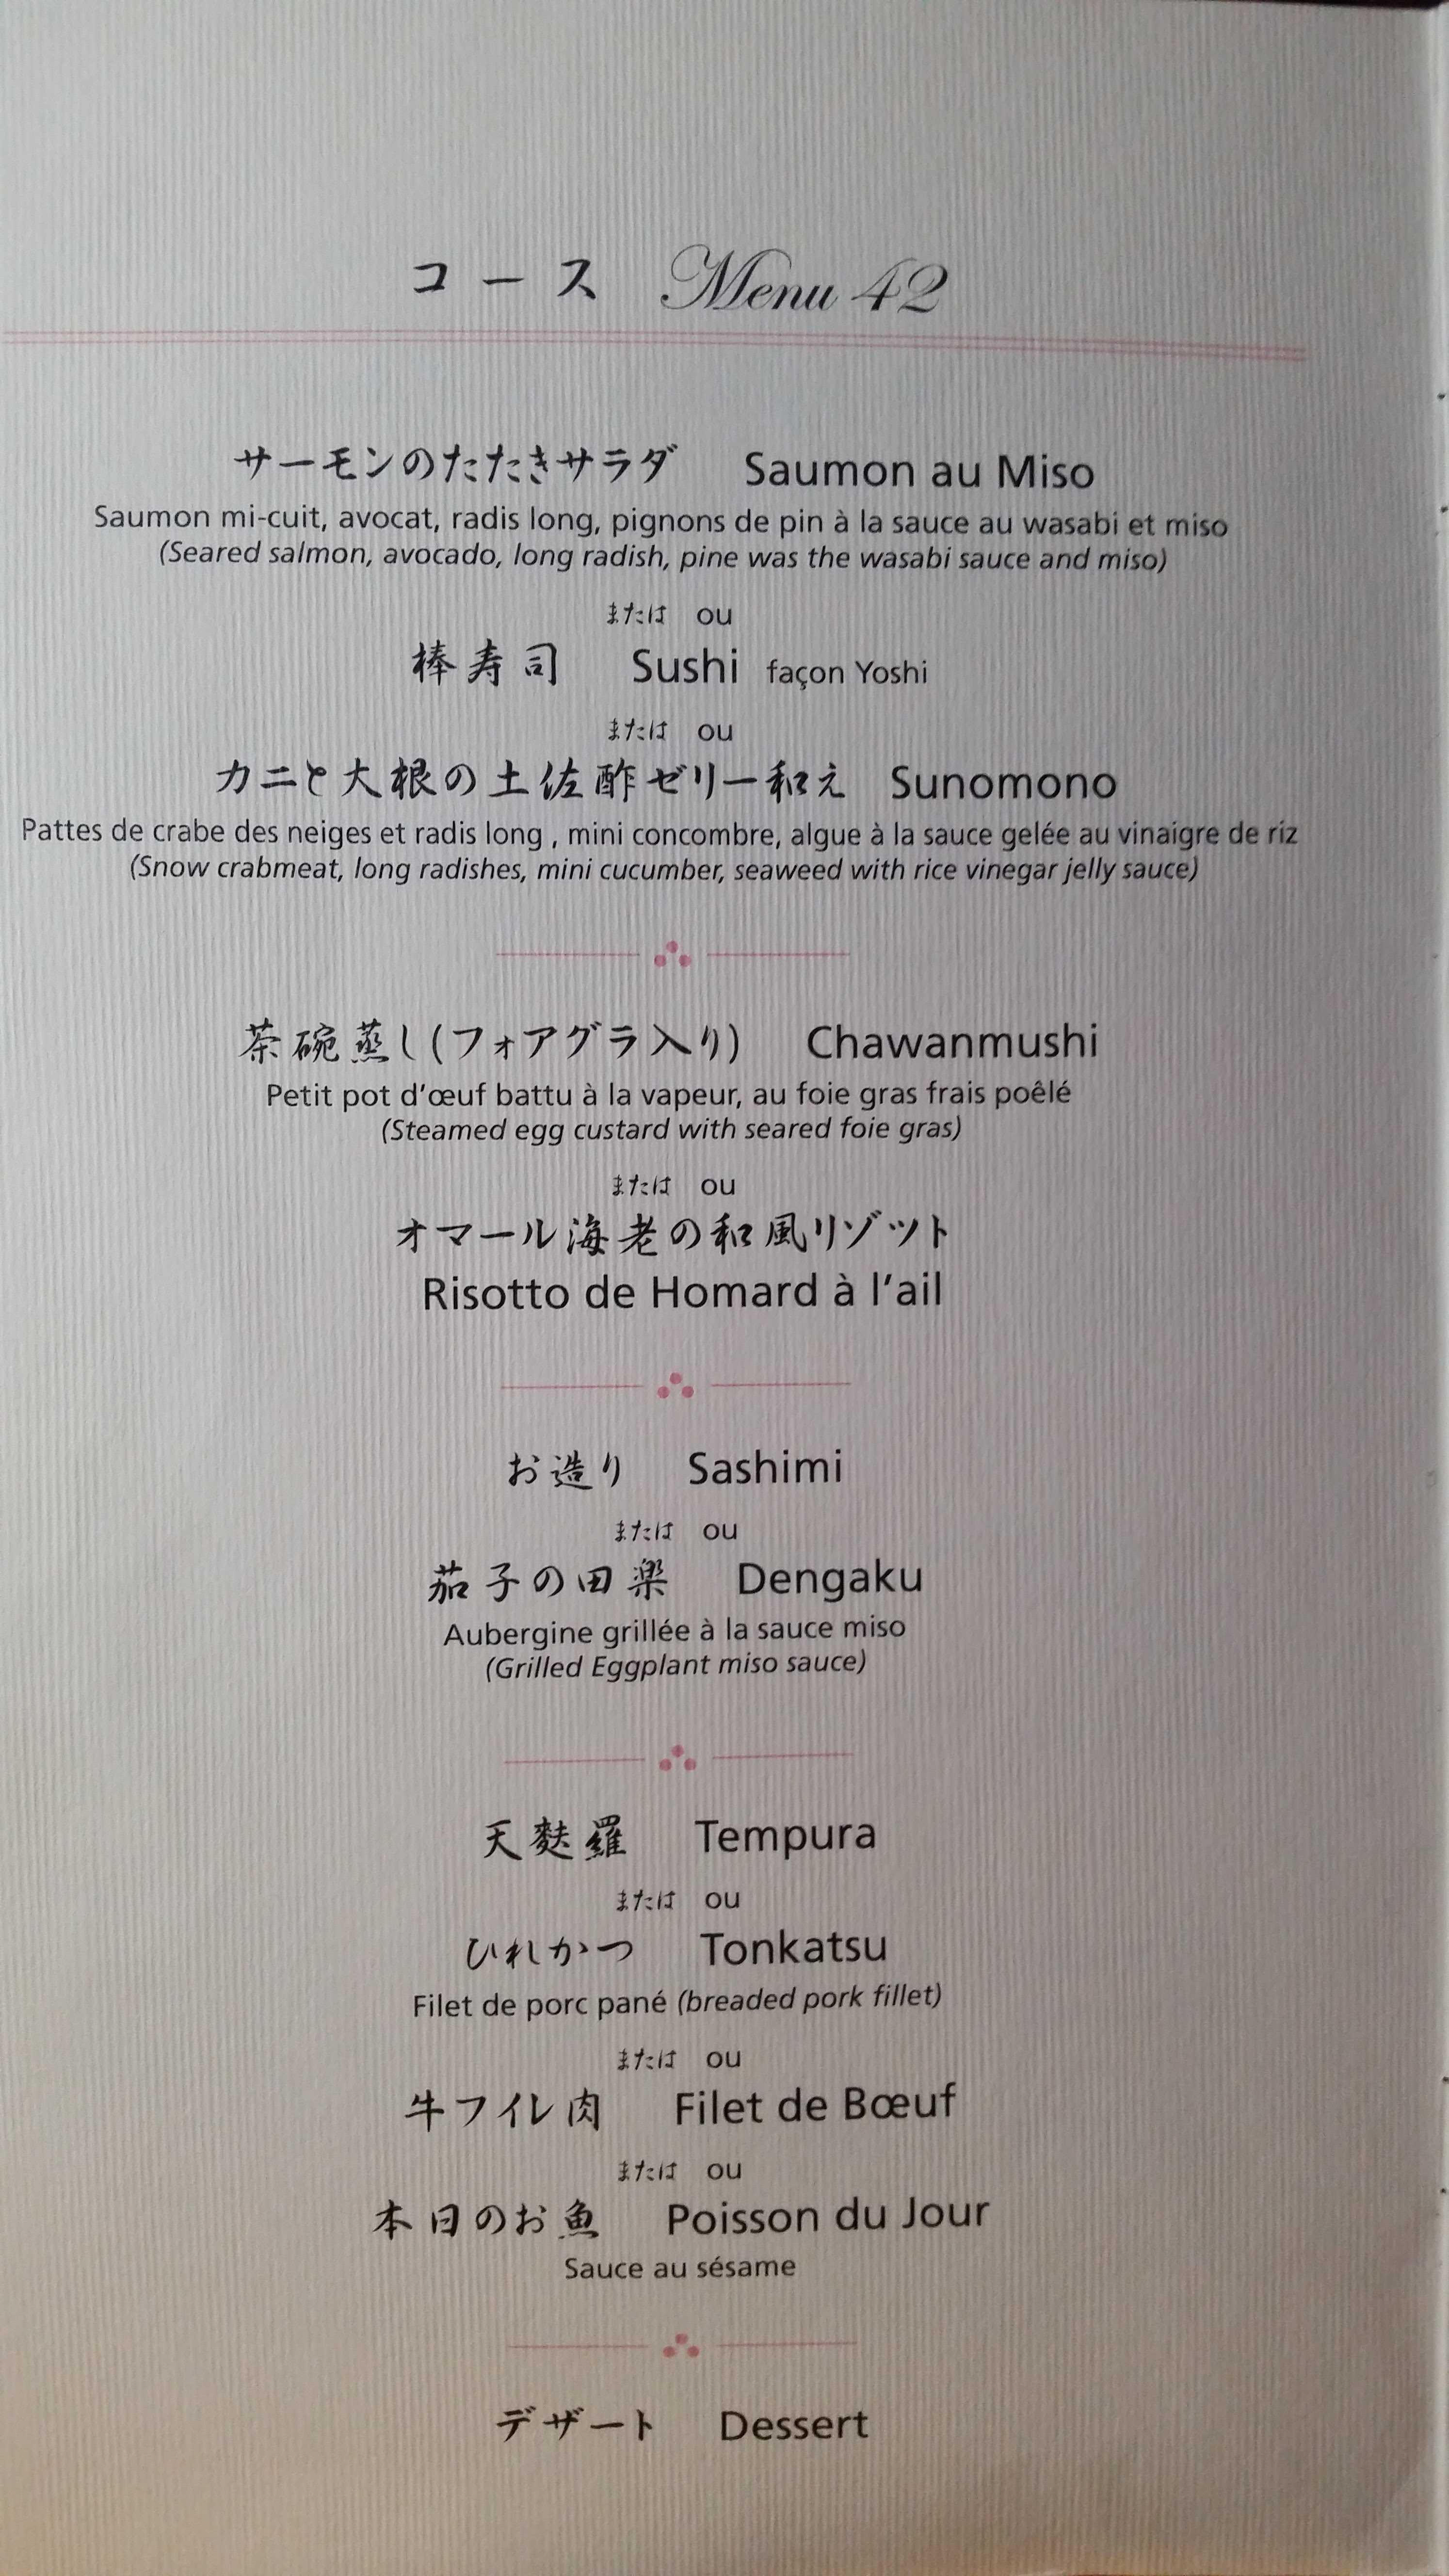 コース Menu 42
サーモンのたたきサラダ Saumon au Miso
Saumon mi-cuit, avocat, radis long, pignons de pin à la sauce au wasabi et miso
(Seared salmon, avocado, long radish, pine was the wasabi sauce and miso)
または ou
棒寿司 Sushi façon Yoshi
または ou
カニと大根の土佐酢ゼリー和え Sunomono
Pattes de crabe des neiges et radis long , mini concombre, algue à la sauce gelée au vinaigre de riz
(Snow crabmeat, long radishes, mini cucumber, seaweed with rice vinegar jelly sauce)
茶碗蒸し(フォアグラ入り) Chawanmushi
Petit pot d'œuf battu à la vapeur, au foie gras frais poêlé
(Steamed egg custard with seared foie gras)
または ou
オマール海老の和風リゾット
Risotto de Homard à l'ail
お造り Sashimi
または ou
茄子の田楽 Dengaku
Aubergine grillée à la sauce miso
(Grilled Eggplant miso sauce)
天麩羅 Tempura
または ou
ひれかつ Tonkatsu
Filet de porc pané (breaded pork fillet)
または ou
牛フイレ肉 Filet de Bœuf
または ou
本日のお魚 Poisson du Jour
Sauce au sésame
デザート Dessert